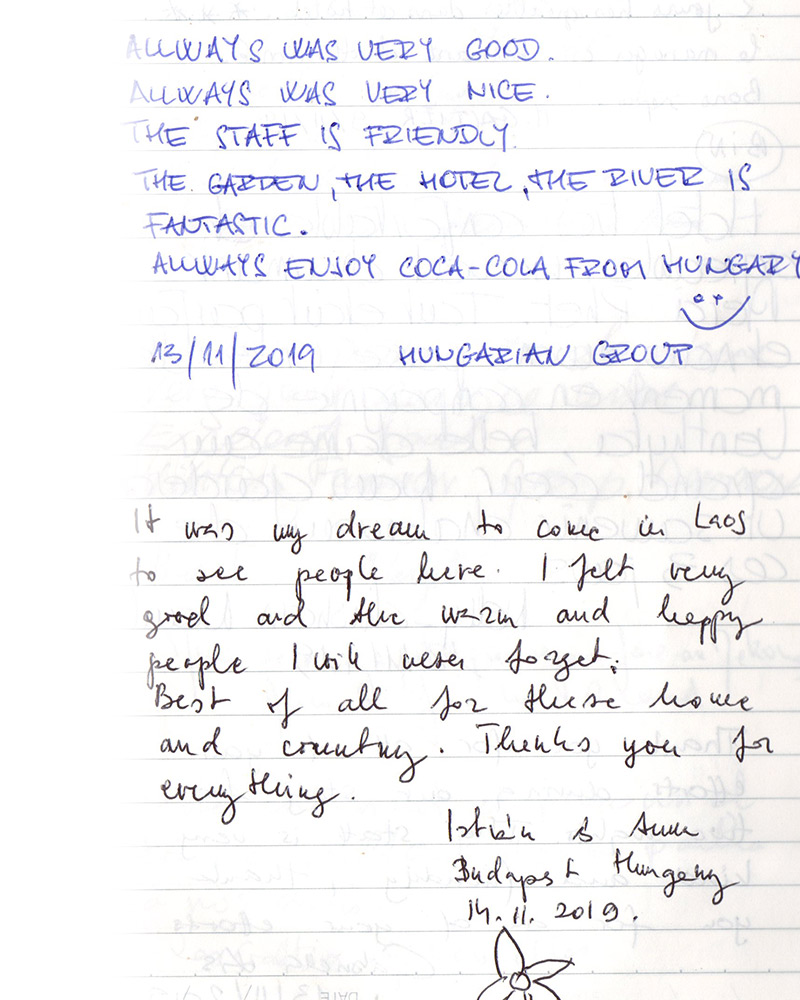 ALLWAYS WAS VERY GOOD.
ALLWAYS WAS VERY NICE.
THE STAFF IS FRIENDLY.
THE GARDEN, THE HOTEL, THE RIVER IS
FANTASTIC.
ALLWAYS ENJOY COCA-COLA FROM HUNGARY
13/11/2019 HUNGARIAN GROUP
It was my dream to come in Laos
to see people here. I felt very
good and the warm and happy
people I will never forget.
Best of all for these home
and country. Thanks you for
everything.
István & Anna
Budapest Hungary
14. 11. 2019.